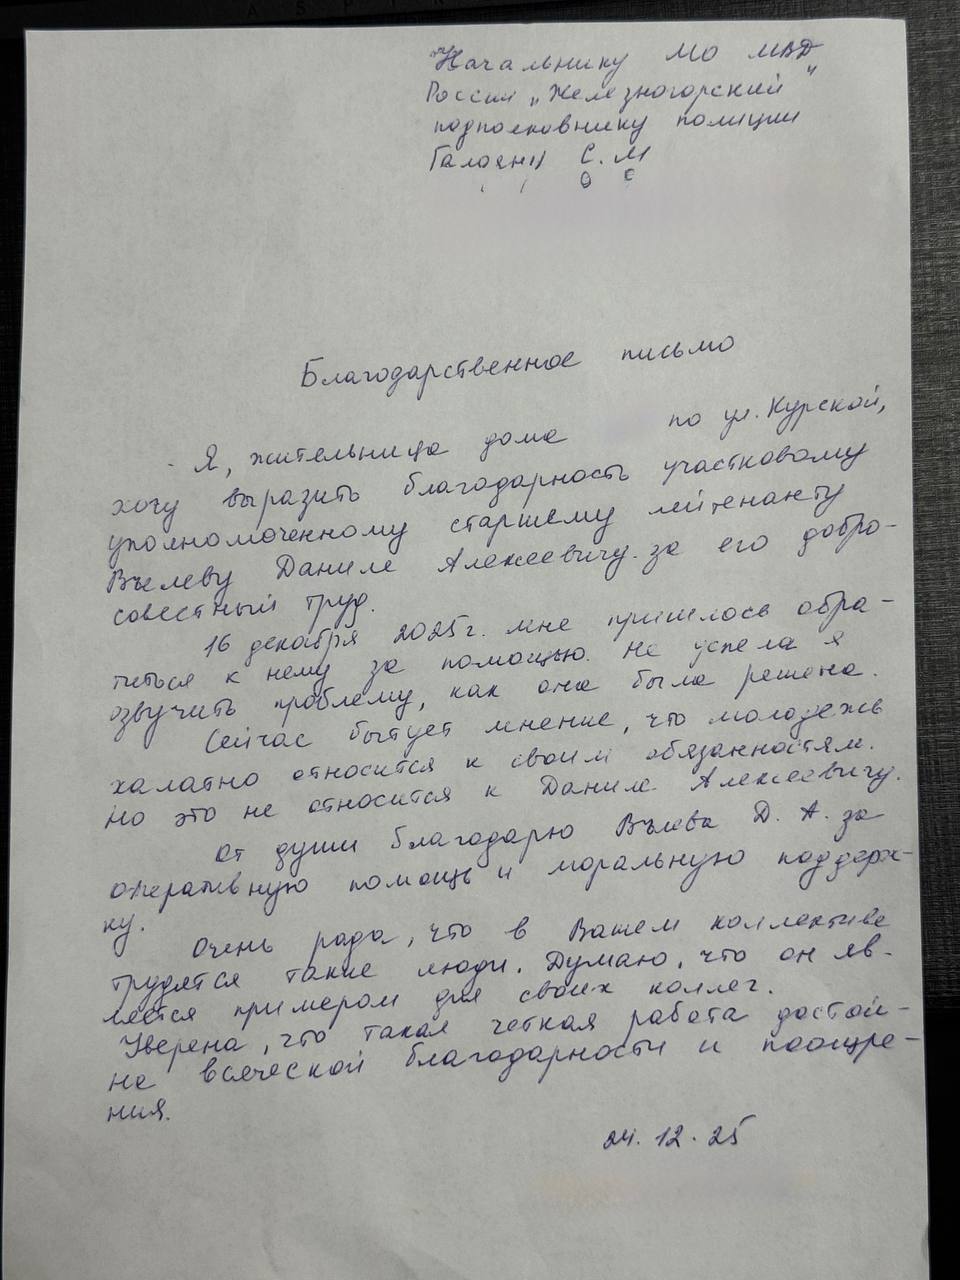 Начальнику МО МВД
России „Железногорский"
подполковнику полиции
Галояну С.М
Благодарственное письмо
Я, жительница дома по ул. Курской,
хочу выразить благодарность участковому
уполномоченному старшему лейтенанту
Вълеву Даниле Алексеевичу за его добро-
совестный труд.
16 декабря 2025г. мне пришлось обра-
титься к нему за помощью. Не успела я
озвучить проблему, как она была решена.
Сейчас бытует мнение, что молодежь
халатно относится к своим обязанностям.
Но это не относится к Даниле Алексеевичу.
От души благодарю Вълева Д. А. за
оперативную помощь и моральную поддерж-
ку.
Очень рада, что в Вашем коллективе
трудятся такие люди. Думаю, что он яв-
ляется примером для своих коллег.
Уверена, что такая четкая работа достой-
на всяческой благодарности и поощре-
ния.
24.12.25